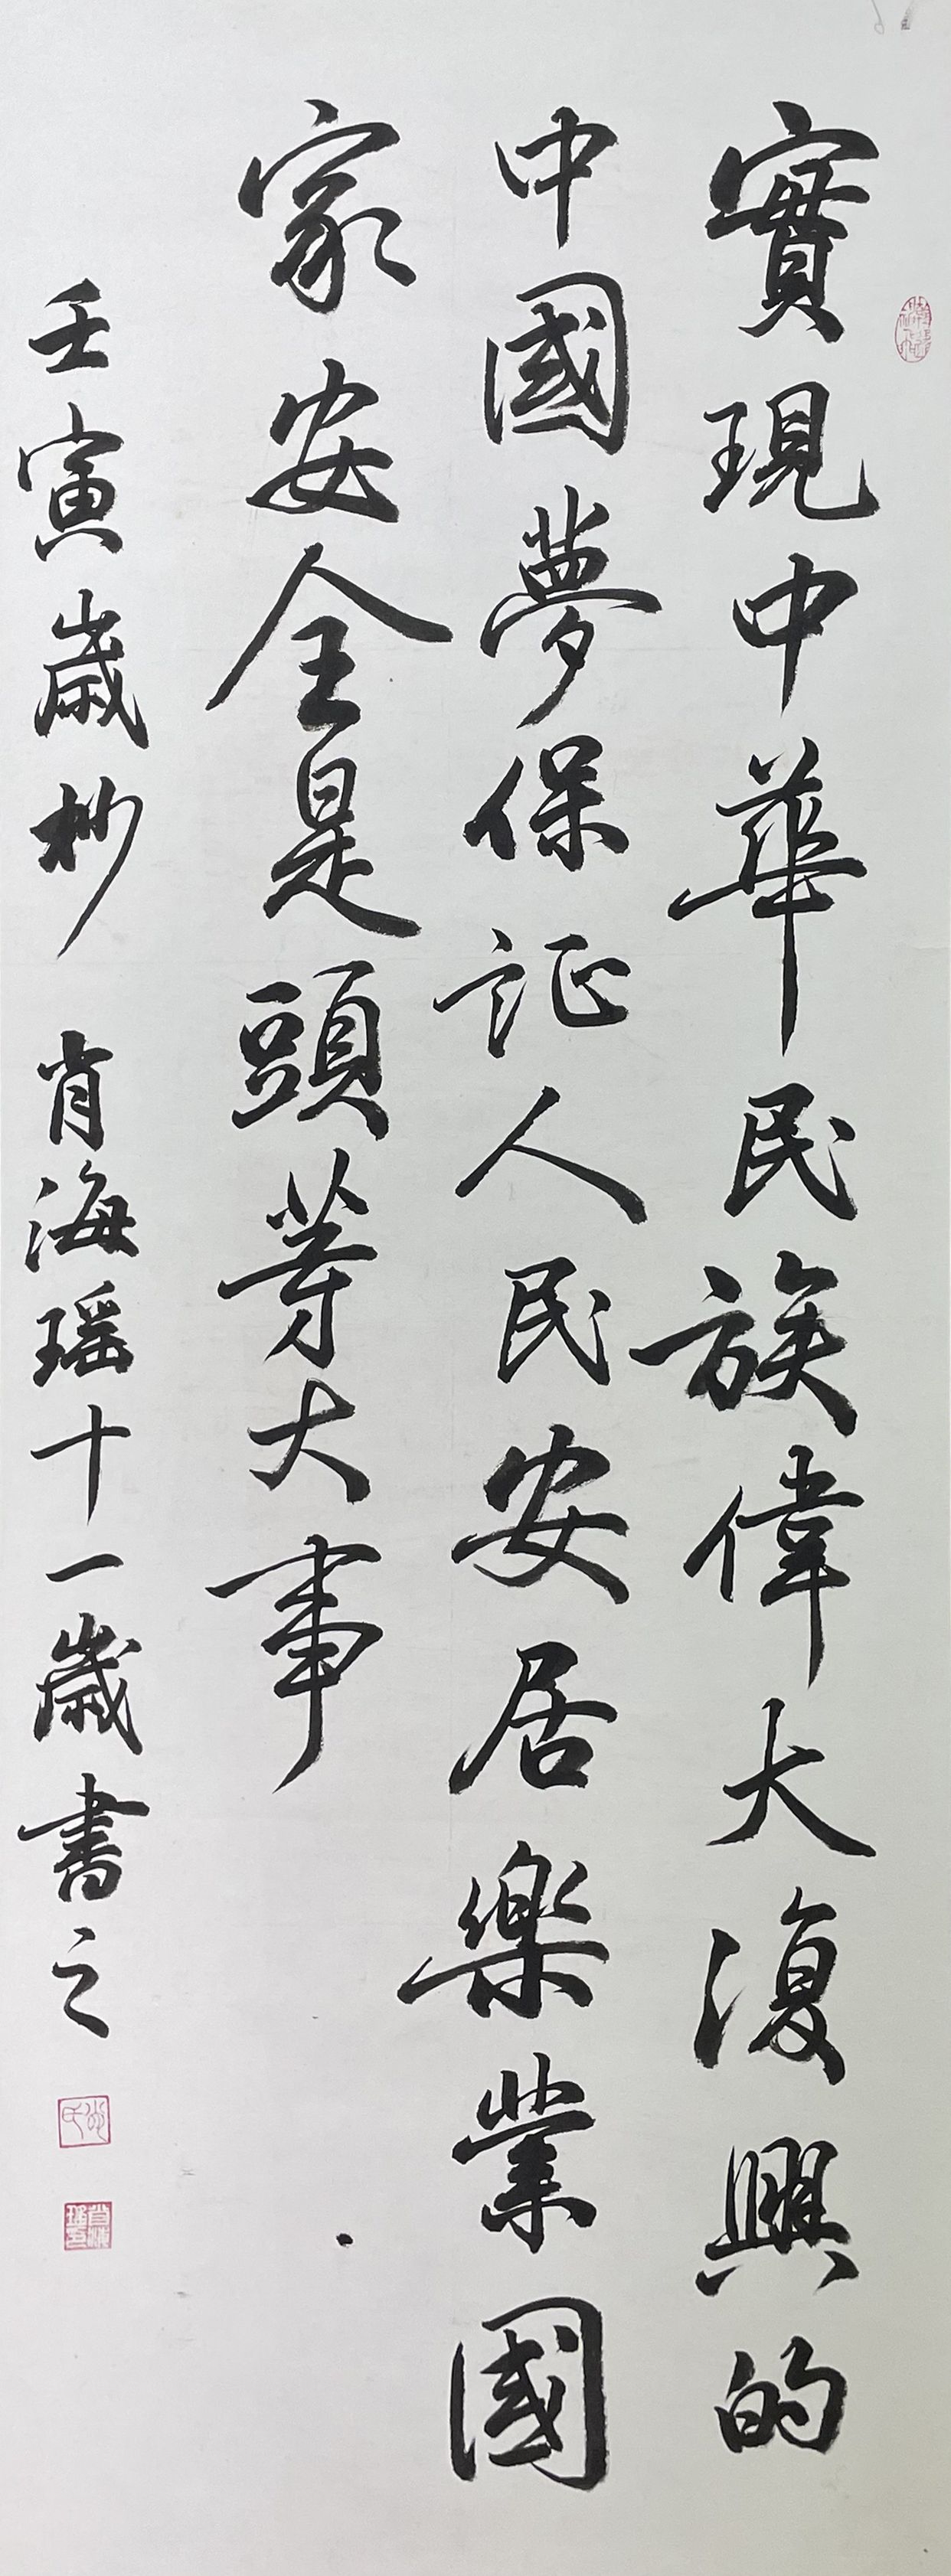 實現中華民族偉大復興的
中國夢保証人民安居樂業國
家安全是頭等大事
壬寅歲杪 肖海瑶十一歲書之